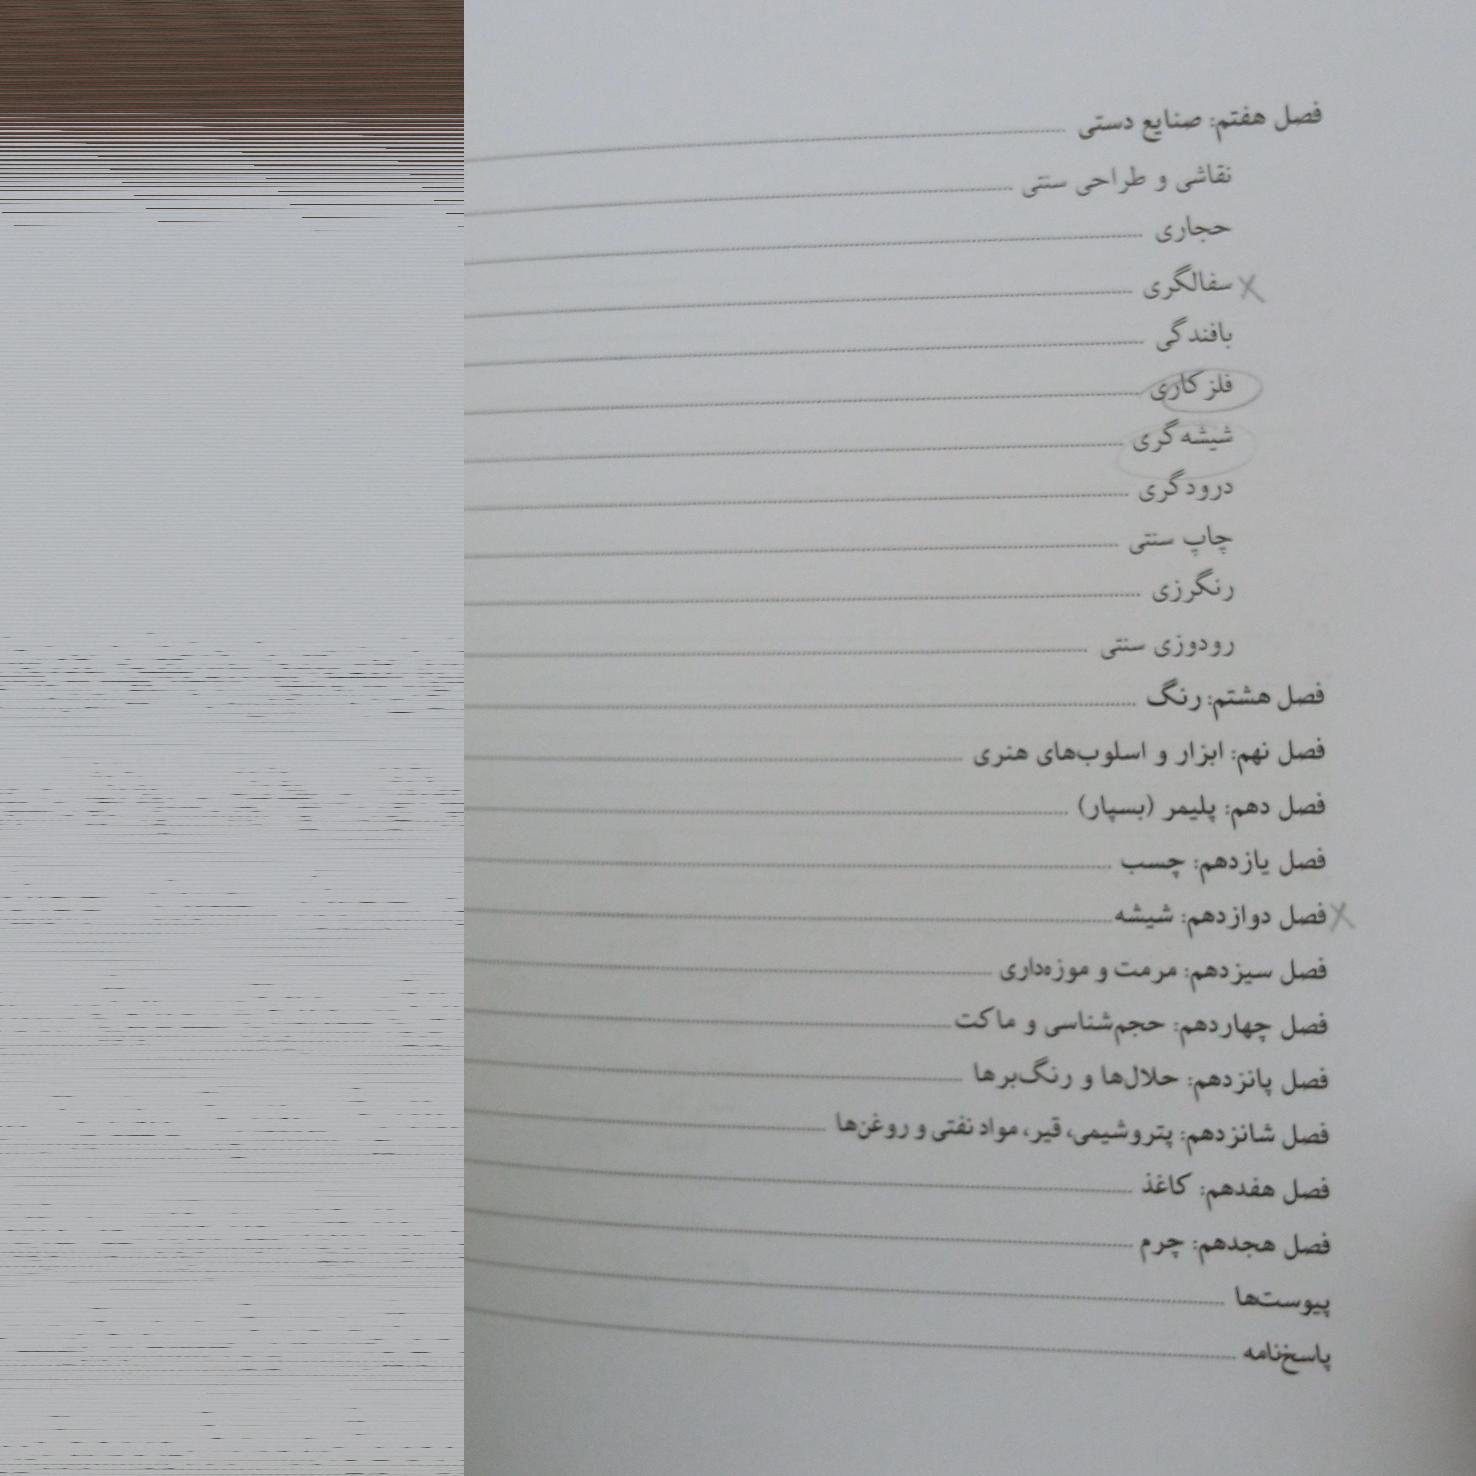 فصل هفتم: صنایع دستی
نقاشی و طراحی سنتی
حجاری
سفالگری
بافندگی
فلزکاری
شیشه‌گری
درودگری
چاپ سنتی
رنگرزی
رودوزی سنتی
فصل هشتم: رنگ
فصل نهم: ابزار و اسلوب‌های هنری
فصل دهم: پلیمر (بسپار)
فصل یازدهم: چسب
فصل دوازدهم: شیشه
فصل سیزدهم: مرمت و موزه‌داری
فصل چهاردهم: حجم‌شناسی و ماکت
فصل پانزدهم: حلال‌ها و رنگ‌برها
فصل شانزدهم: پتروشیمی، قیر، مواد نفتی و روغن‌ها
فصل هفدهم: کاغذ
فصل هجدهم: چرم
پیوست‌ها
پاسخ‌نامه